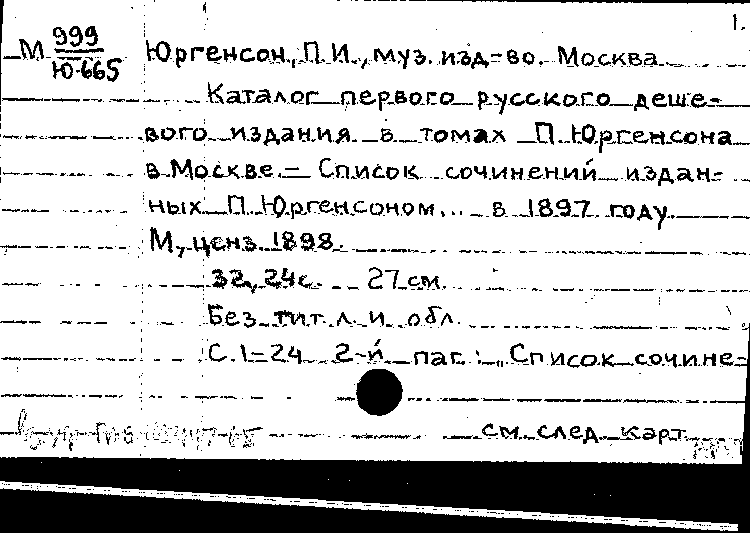 1.
М 999
Ю-665
Юргенсон, П.И., муз. изд-во. Москва
Каталог первого русского деше-
вого издания в томах П. Юргенсона
в Москве. – Список сочинений издан-
ных П. Юргенсоном... в 1897 году.
М, ценз. 1898.
32, 24с. 27 см.
Без тит. л. и обл.
С. 1-24 2-й паг.: „Список сочине-
см. след. карт.